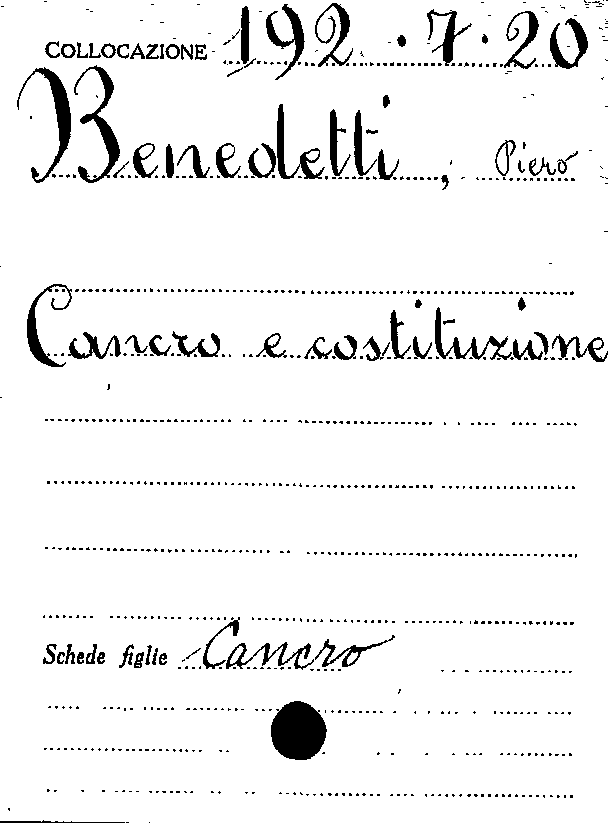 COLLOCAZIONE 192.7.20
Benedetti, Piero
Cancro e costituzione
Schede figlie Cancro